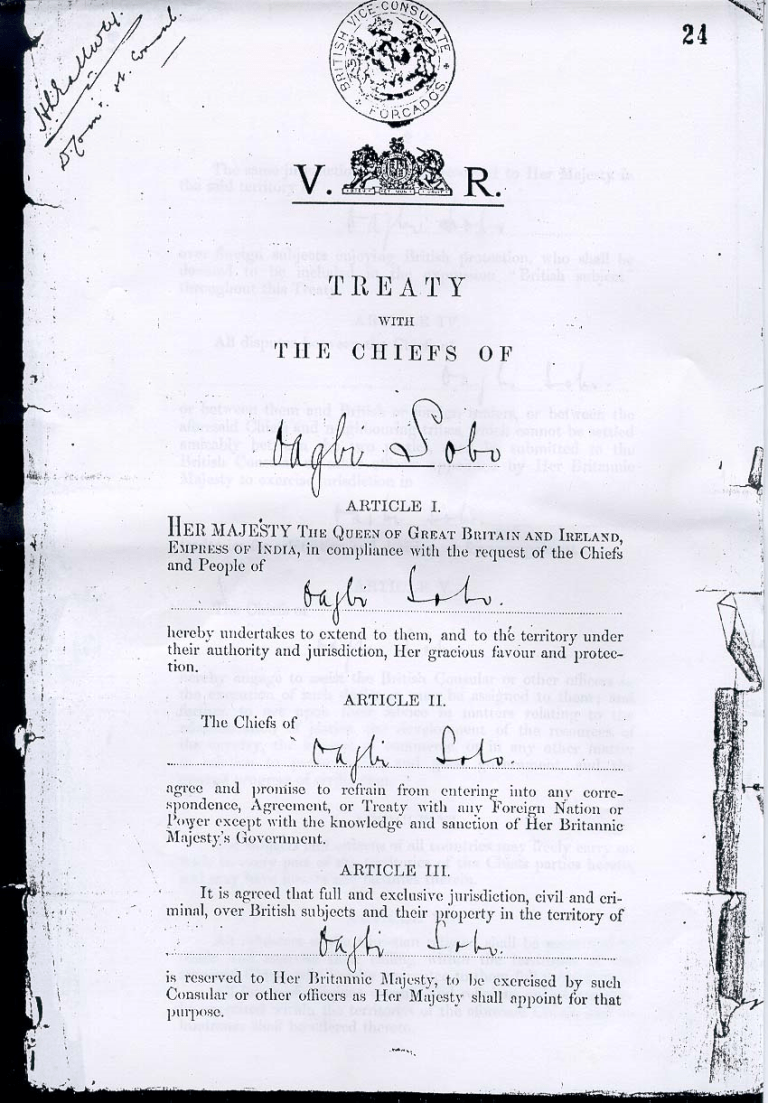 24
BRITISH VICE-CONSULATE
* FORCADOS *
V. R.
TREATY
WITH
THE CHIEFS OF
Oagbi Sobo
ARTICLE I.
HER MAJESTY THE QUEEN OF GREAT BRITAIN AND IRELAND,
EMPRESS OF INDIA, in compliance with the request of the Chiefs
and People of
Oagbi Sobo.
hereby undertakes to extend to them, and to the territory under
their authority and jurisdiction, Her gracious favour and protec-
tion.
ARTICLE II.
The Chiefs of
Oagbi Sobo.
agree and promise to refrain from entering into any corre-
spondence, Agreement, or Treaty with any Foreign Nation or
Power except with the knowledge and sanction of Her Britannic
Majesty's Government.
ARTICLE III.
It is agreed that full and exclusive jurisdiction, civil and cri-
minal, over British subjects and their property in the territory of
Oagbi Sobo.
is reserved to Her Britannic Majesty, to be exercised by such
Consular or other officers as Her Majesty shall appoint for that
purpose.